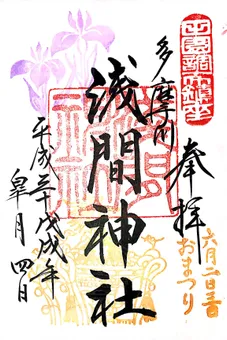 奉拝
六月二日三日
おまつり
多摩川
浅間神社
平成三十戊戌年
皐月 四日